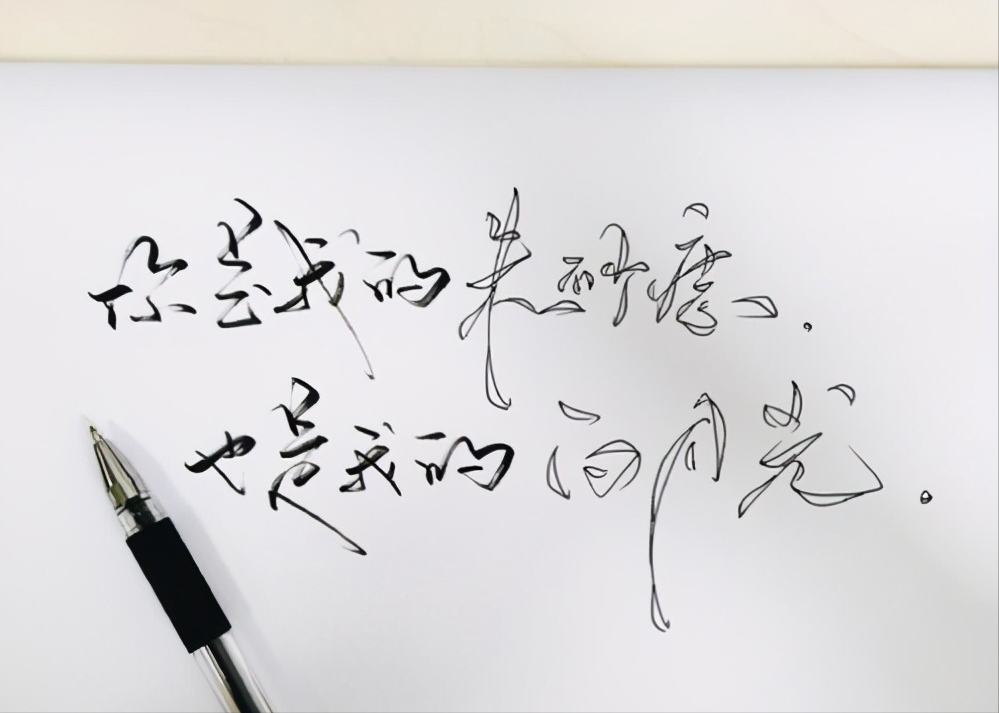 你是我的朱砂痣.
也是我的白月光.